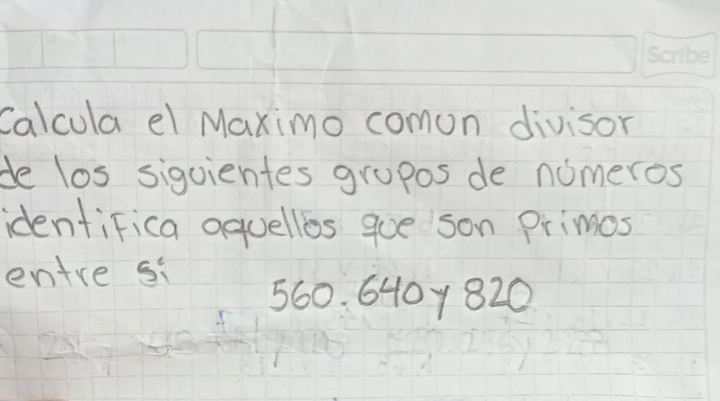 Scribe
Calcula el Maximo comun divisor
de los siguientes grupos de números
identifica aquellos que son Primos
entre si
560.640 y 820